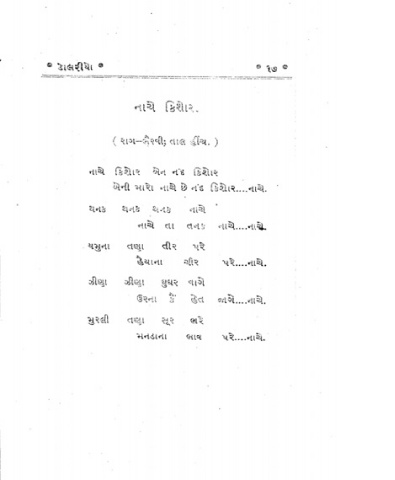 • ડાલરીયો •
• ૧૭ •
નાચે કિશોર.
( રાગ–ભૈરવી; તાલ હીંચ. )
નાચે કિશોર એન નંદ કિશોર
એની મારો નાચે છે નંદ કિશોર....નાચે.
થનક થનક થનક નાચે
નાચે તા તનક નાચે....નાચે.
યમુના તણા તીર પરે
હૈયાના ચીર પરે....નાચે.
ઝીણા ઝીણા ઘુઘર વાગે
ઉરના કૈં હેત જાગે....નાચે.
મુરલી તણા સૂર ભરે
મનડાના ભાવ પરે....નાચે.